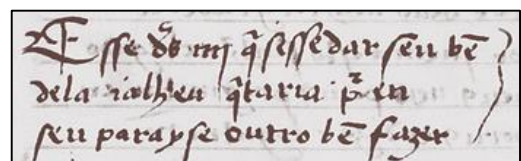 Esse ds mj q̃sesse dar seu bẽ
dela ialheu q̃taria p̃ en
seu parayse outro bẽ fazer